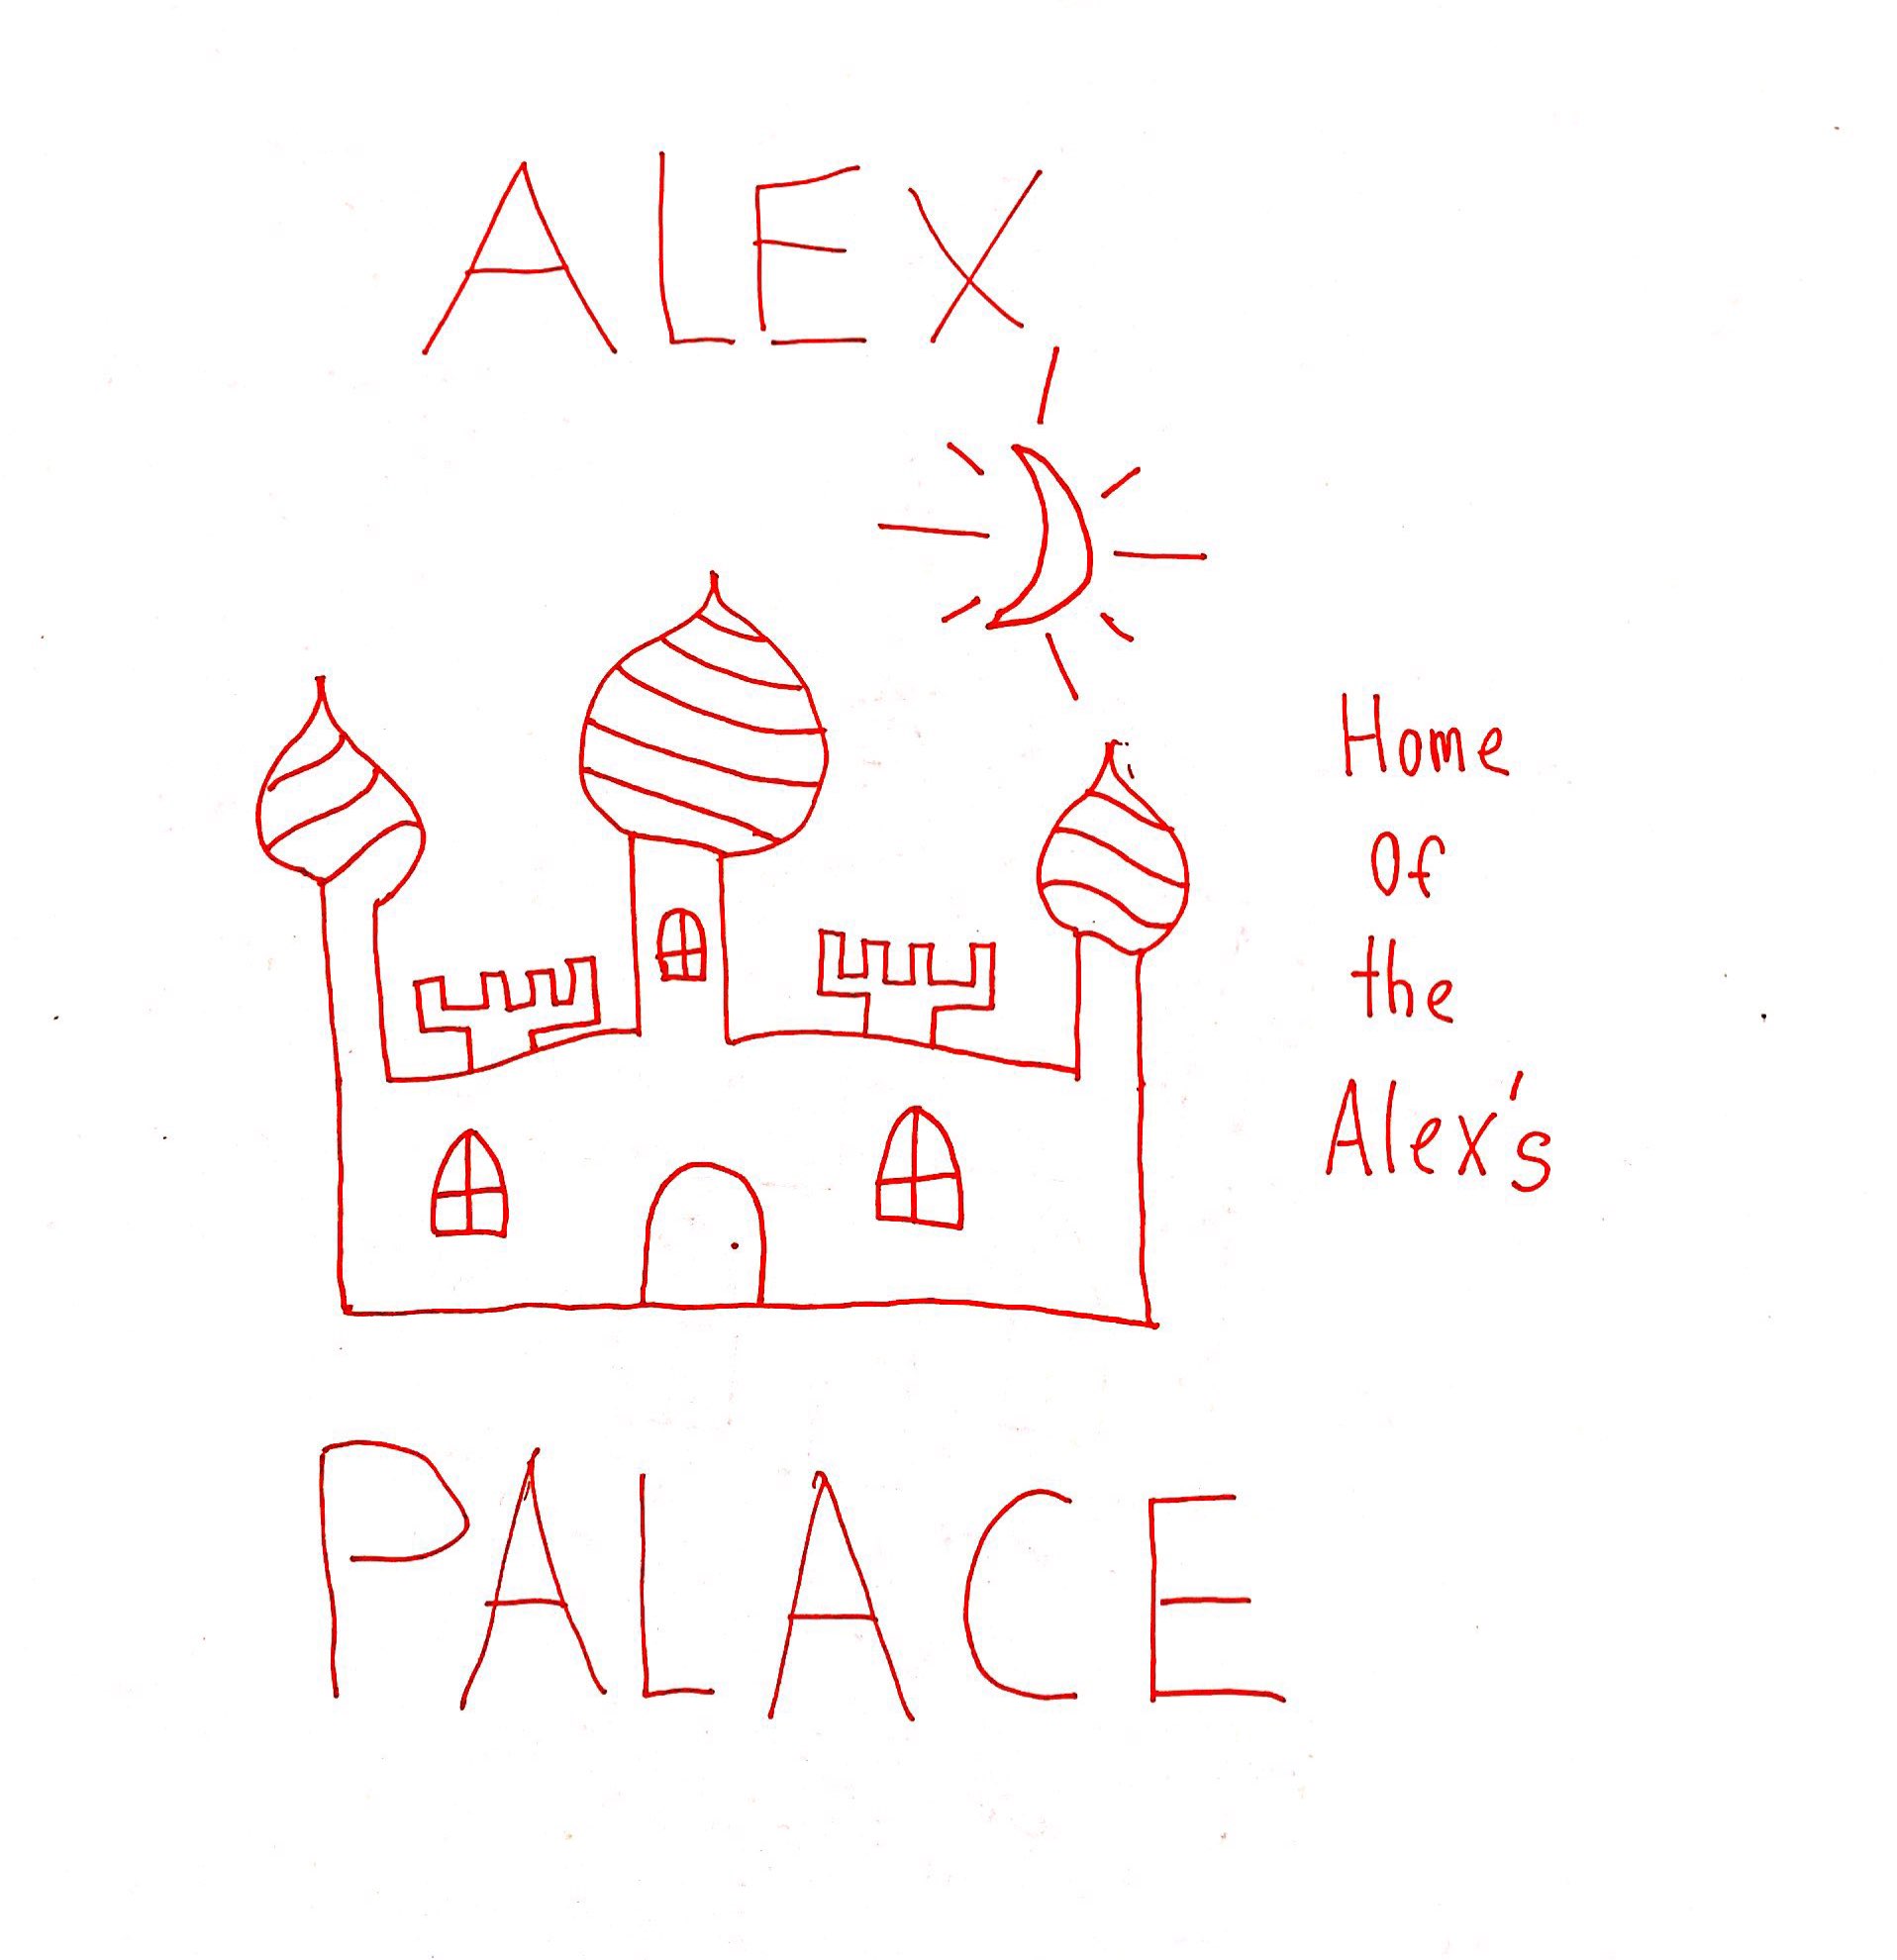 ALEX
Home
Of
the
Alex's
PALACE